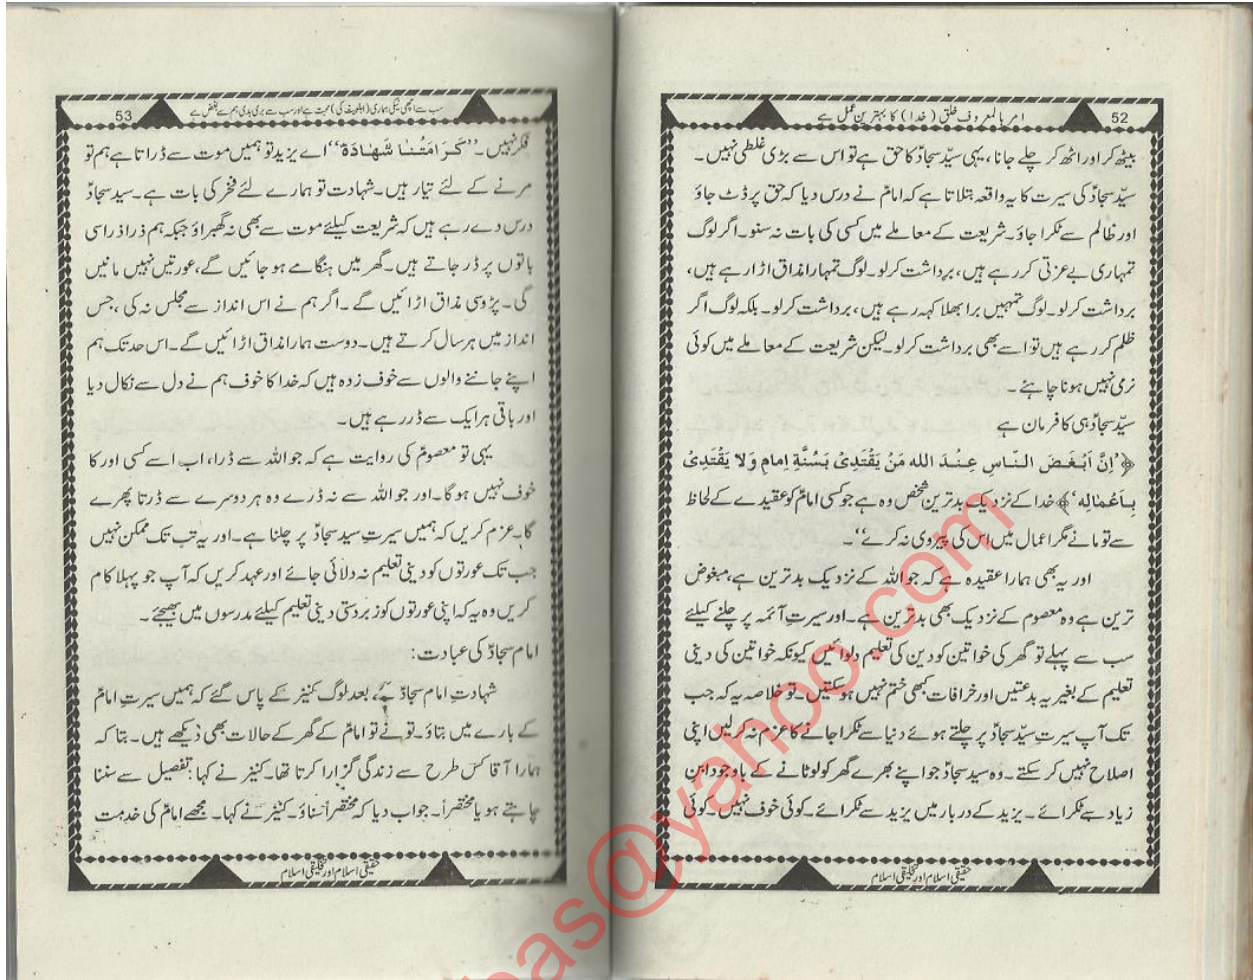 امر بالمعروف خلق (خدا) کا بہترین عمل ہے
52
بیٹھ کر اور اٹھ کر چلے جانا، یہی سیّد سجادؑ کا حق ہے تو اس سے بڑی غلطی نہیں۔
سیّد سجادؑ کی سیرت کا یہ واقعہ بتلاتا ہے کہ امامؑ نے درس دیا کہ حق پر ڈٹ جاؤ
اور ظالم سے ٹکرا جاؤ۔ شریعت کے معاملے میں کسی کی بات نہ سنو۔ اگر لوگ
تمہاری بے عزتی کر رہے ہیں، برداشت کرلو۔ لوگ تمہارا مذاق اڑا رہے ہیں،
برداشت کرلو۔ لوگ تمہیں برا بھلا کہہ رہے ہیں، برداشت کرلو۔ بلکہ لوگ اگر
ظلم کر رہے ہیں تو اسے بھی برداشت کرلو۔ لیکن شریعت کے معاملے میں کوئی
نرمی نہیں ہونا چاہئے۔
سیّد سجادؑ ہی کا فرمان ہے
﴿’’اِنَّ اَبْغَضَ النَّاسِ عِنْدَ الله مَنْ یَقْتَدِیْ بَسُنَّةِ اِمامٍ وَلا یَقْتَدِیْ
بِاَعْمٰالِه‘﴾ خدا کے نزدیک بدترین شخص وہ ہے جو کسی امامؑ کو عقیدے کے لحاظ
سے تو مانے مگر اعمال میں اس کی پیروی نہ کرے‘‘۔
اور یہ بھی ہمارا عقیدہ ہے کہ جو اللہ کے نزدیک بدترین ہے، مبغوض
ترین ہے وہ معصوم کے نزدیک بھی بدترین ہے۔ اور سیرتِ آئمہ پر چلنے کیلئے
سب سے پہلے تو گھر کی خواتین کو دین کی تعلیم دلوائیں کیونکہ خواتین کی دینی
تعلیم کے بغیر یہ بدعتیں اور خرافات کبھی ختم نہیں ہوسکتیں۔ تو خلاصہ یہ کہ جب
تک آپ سیرتِ سیّد سجادؑ پر چلتے ہوئے دنیا سے ٹکرا جانے کا عزم نہ کرلیں اپنی
اصلاح نہیں کر سکتے۔ وہ سید سجادؑ جو اپنے بھرے گھر کو لوٹانے کے باوجود ابن
زیاد سے ٹکرائے۔ یزید کے دربار میں یزید سے ٹکرائے۔ کوئی خوف نہیں۔ کوئی
حقیقی اسلام اور تخلیقی اسلام
سب سے اچھی نیکی ہماری (اہلبیتؑ کی) محبت ہے اور سب سے بری بدی ہم سے بغض ہے
53
فکر نہیں۔ ’’کَرَامَتُنٰا شَّهٰادَة‘‘ اے یزید تو ہمیں موت سے ڈراتا ہے ہم تو
مرنے کے لئے تیار ہیں۔ شہادت تو ہمارے لئے فخر کی بات ہے۔ سید سجادؑ
درس دے رہے ہیں کہ شریعت کیلئے موت سے بھی نہ گھبراؤ جبکہ ہم ذرا ذراسی
باتوں پر ڈر جاتے ہیں۔ گھر میں ہنگامے ہو جائیں گے، عورتیں نہیں مانیں
گی۔ پڑوسی مذاق اڑائیں گے۔ اگر ہم نے اس انداز سے مجلس نہ کی، جس
انداز میں ہر سال کرتے ہیں۔ دوست ہمارا مذاق اڑائیں گے۔ اس حد تک ہم
اپنے جاننے والوں سے خوف زدہ ہیں کہ خدا کا خوف ہم نے دل سے نکال دیا
اور باقی ہر ایک سے ڈر رہے ہیں۔
یہی تو معصومؑ کی روایت ہے کہ جو اللہ سے ڈرا، اب اسے کسی اور کا
خوف نہیں ہوگا۔ اور جو اللہ سے نہ ڈرے وہ ہر دوسرے سے ڈرتا پھرے
گا۔ عزم کریں کہ ہمیں سیرتِ سید سجادؑ پر چلنا ہے۔ اور یہ تب تک ممکن نہیں
جب تک عورتوں کو دینی تعلیم نہ دلائی جائے اور عہد کریں کہ آپ جو پہلا کام
کریں وہ یہ کہ اپنی عورتوں کو زبردستی دینی تعلیم کیلئے مدرسوں میں بھیجئے۔
امام سجادؑ کی عبادت:
شہادتِ امام سجادؑ کے بعد لوگ کنیز کے پاس گئے کہ ہمیں سیرتِ امامؑ
کے بارے میں بتاؤ۔ تو نے تو امامؑ کے گھر کے حالات بھی دیکھے ہیں۔ بتا کہ
ہمارا آقا کس طرح سے زندگی گزارا کرتا تھا۔ کنیز نے کہا: تفصیل سے سننا
چاہتے ہو یا مختصراً۔ جواب دیا کہ مختصراً سناؤ۔ کنیز نے کہا۔ مجھے امامؑ کی خدمت
حقیقی اسلام اور تخلیقی اسلام
bas@yahoo.com